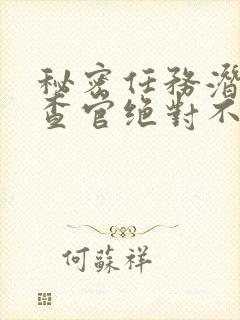 秘密任務潛
查官绝對不
何蘇祥